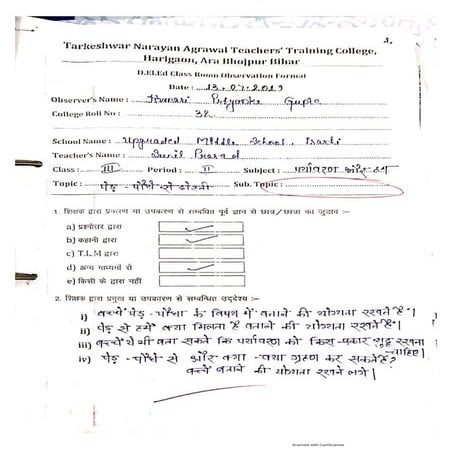 1.
Tarkeshwar Narayan Agrawal Teachers' Training College,
Harigaon, Ara Bhojpur Bihar
D.El.Ed Class Room Observation Format
Date : 13.07.2019
Observer's Name : Kumari Priyanka Gupta
College Roll No : 38
School Name : Upgraded Middle School,
Teacher's Name : Sunil Prasad
Class : III Period : II Subject : पर्यावरण और हम
Topic : पेड़-पौधों से दोस्ती Sub. Topic :
1. शिक्षक द्वारा प्रकरण या उपकरण से सम्बन्धित पूर्व ज्ञान से छात्र/छात्रा का जुड़ाव :-
a) प्रश्नोत्तर द्वारा ✓
b) कहानी द्वारा ✓
c) T.L.M द्वारा
d) अन्य माध्यमों से ✓
e) किसी के द्वारा नहीं
2. शिक्षक द्वारा प्रमुख या उपकरण से सम्बन्धित उद्देश्य :-
i) बच्चे पेड़-पौधों के विषय में बताने की योग्यता रखते हैं।
ii) पेड़ से हमें क्या मिलता है बताने की योग्यता रखते हैं।
iii) बच्चे ये भी बता सकते कि पर्यावरण को किस प्रकार शुद्ध रखना चाहिए।
iv) पेड़-पौधों से और क्या-क्या ग्रहण कर सकते हैं?
बच्चे बताने की योग्यता रखने लगे।
Scanned with CamScanner